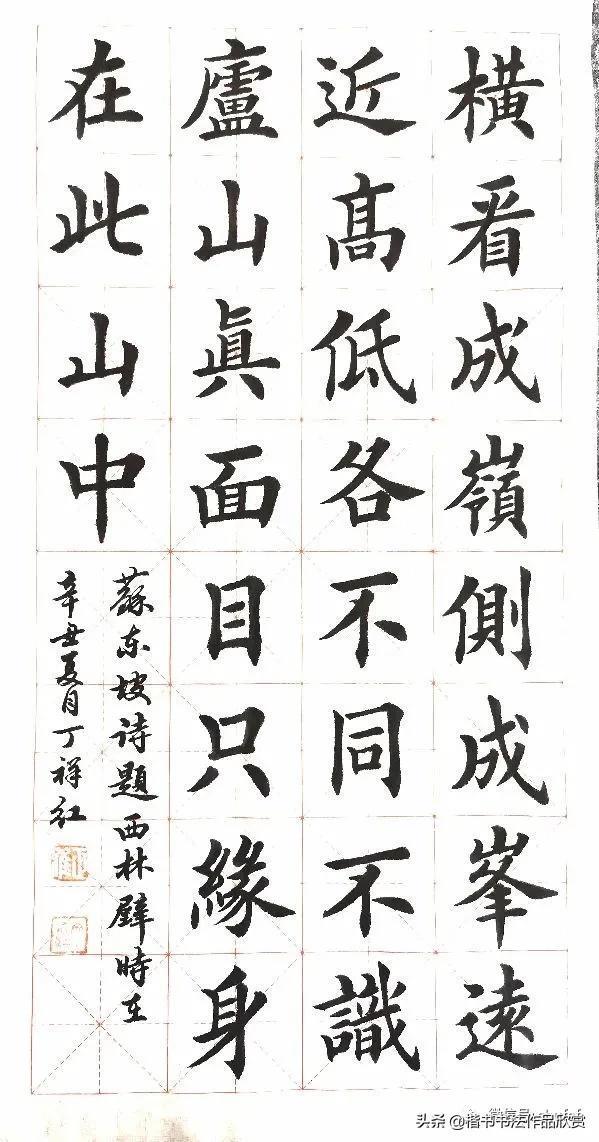 橫看成嶺側成峯遠
近高低各不同不識
廬山真面目只緣身
在此山中
蘇东坡诗題西林壁時在
辛丑夏月丁祥红
头条@楷书书法作品欣赏